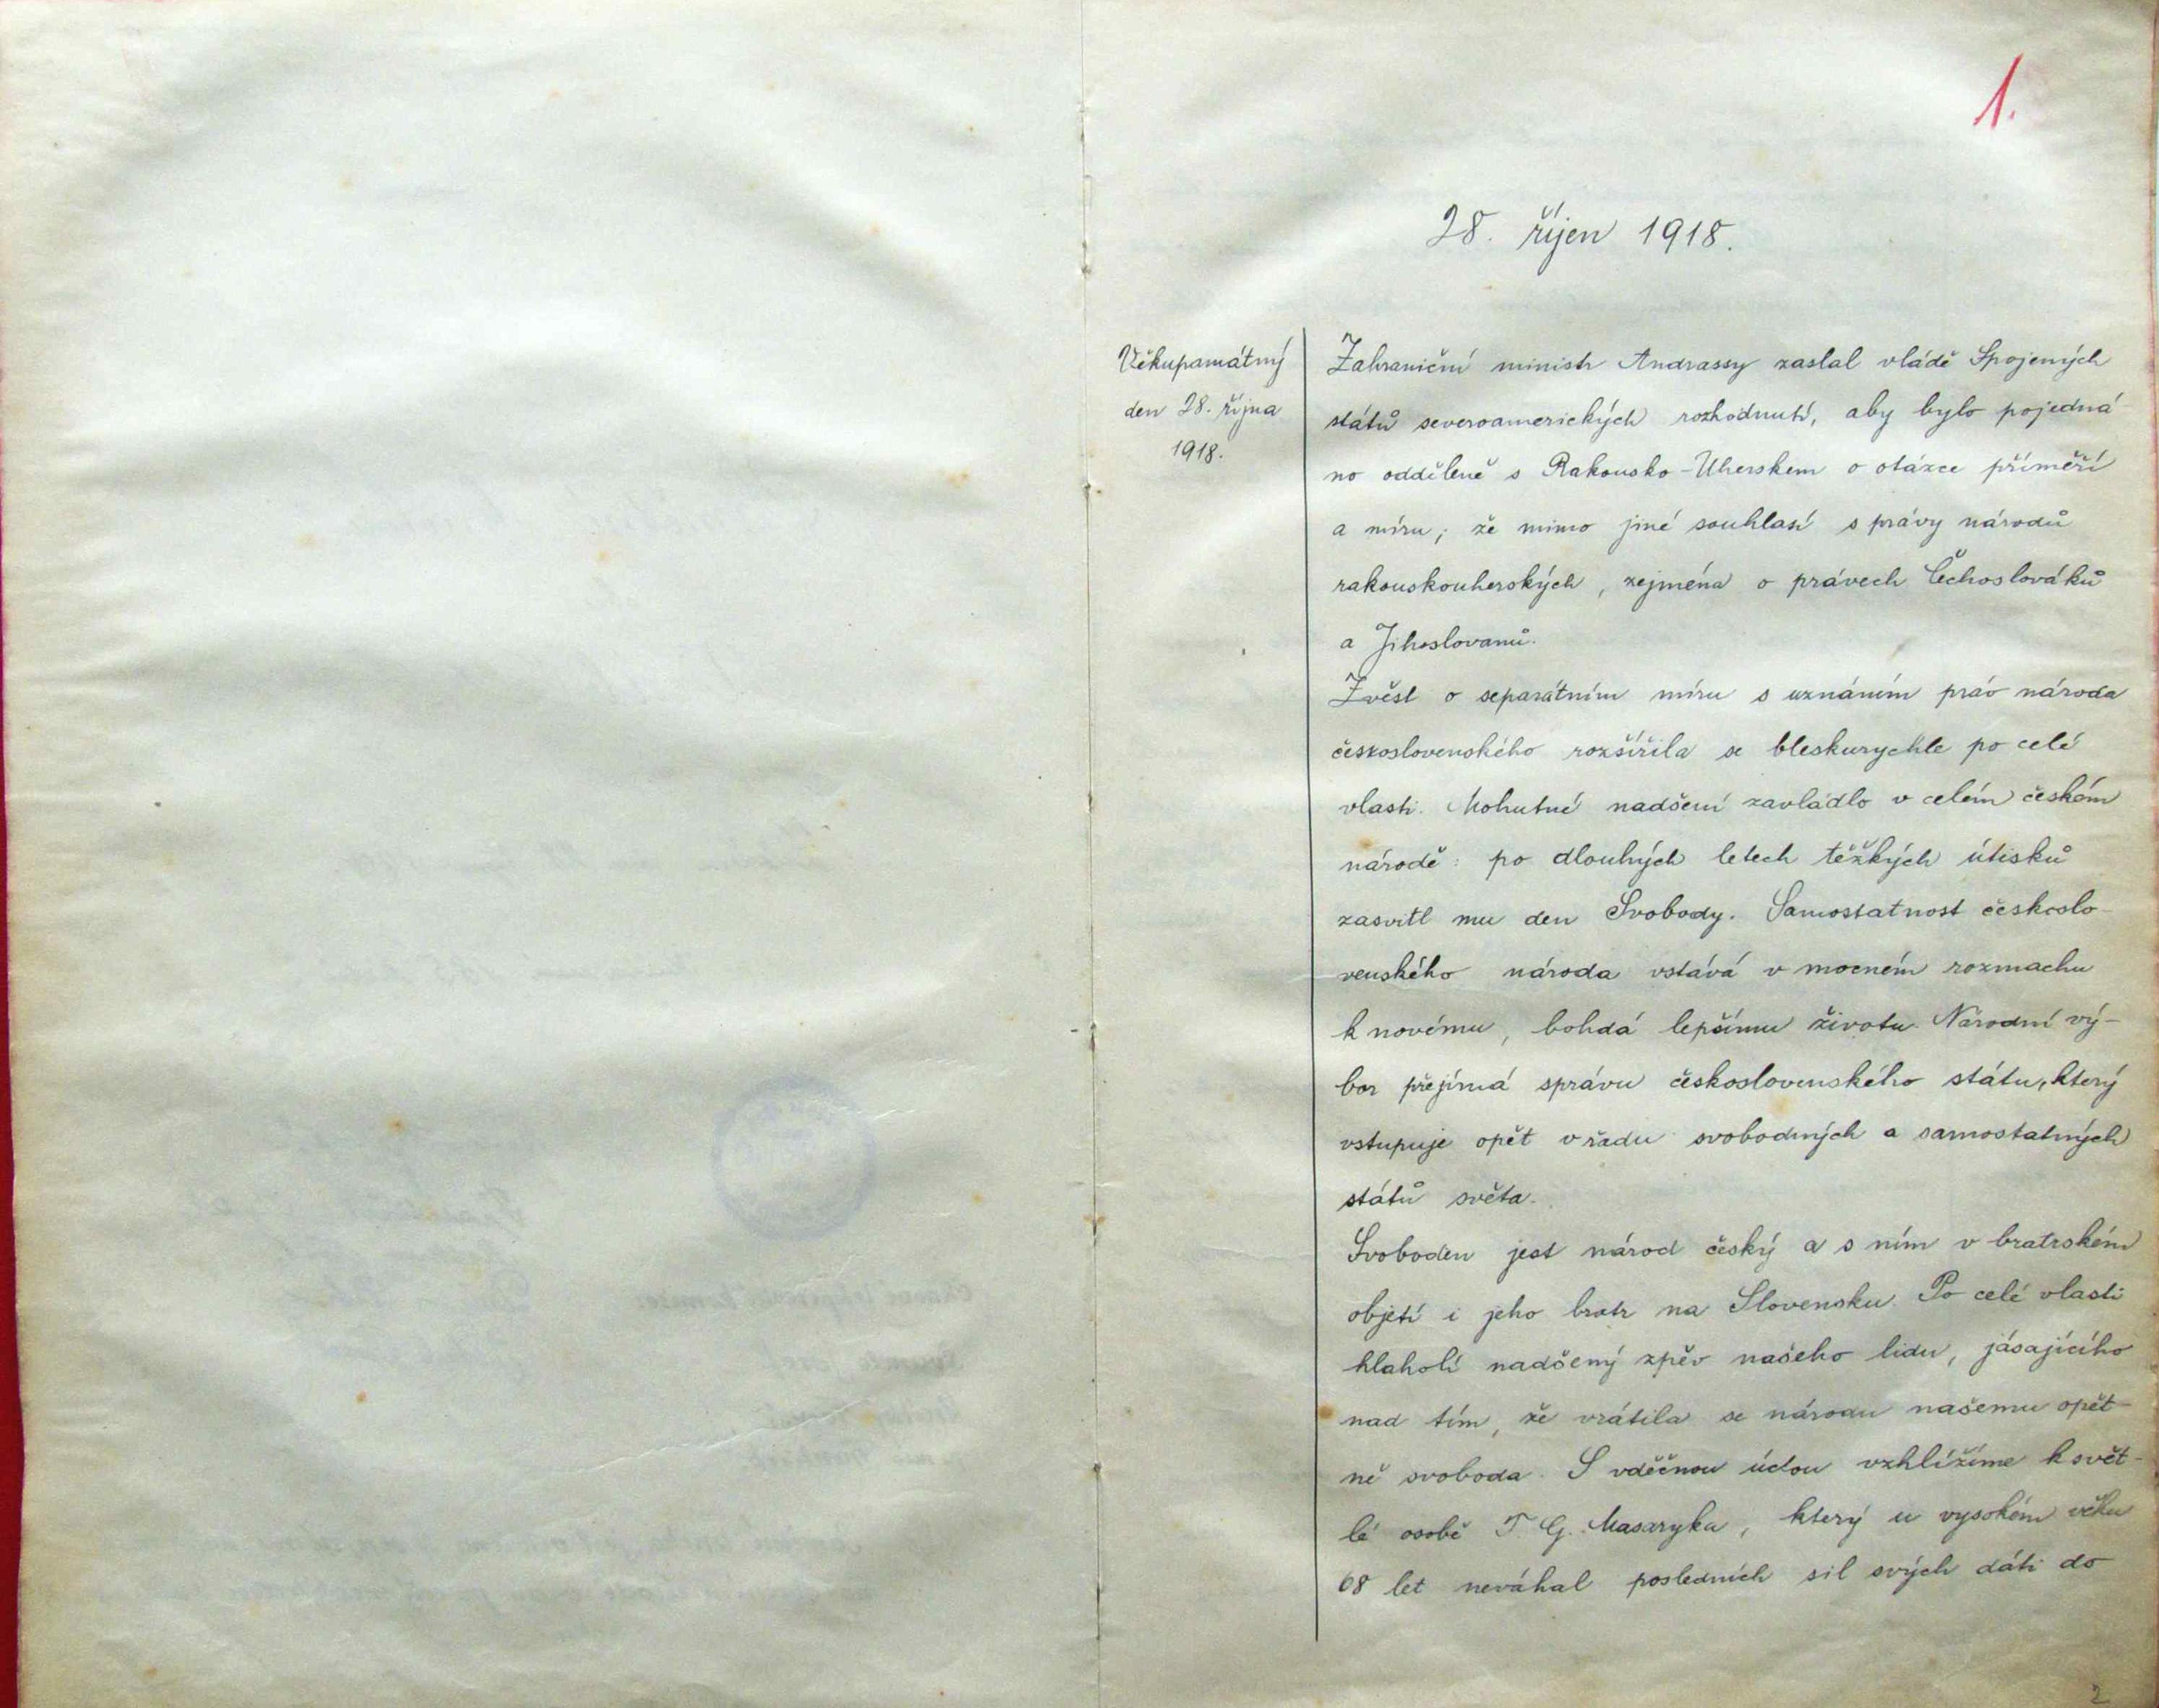 1.
28. říjen 1918.
Věkupamátný
den 28. října
1918.
Zahraniční ministr Andrassy zaslal vládě Spojených
států severoamerických rozhodnutí, aby bylo pojedná-
no odděleně s Rakousko-Uherskem o otázce příměří
a míru; že mimo jiné souhlasí s právy národů
rakouskouherských, zejména o právech Čechoslováků
a Jihoslovanů.
Zvěst o separátním míru s uznáním práv národa
československého rozšířila se bleskurychle po celé
vlasti. Mohutné nadšení zavládlo v celém českém
národě: po dlouhých letech těžkých útisků
zasvitl mu den Svobody. Samostatnost českoslo-
venského národa vstává v mocném rozmachu
k novému, bohdá lepšímu životu. Národní vý-
bor přejímá správu československého státu, který
vstupuje opět v řadu svobodných a samostatných
států světa.
Svoboden jest národ český a s ním v bratrském
objetí i jeho bratr na Slovensku. Po celé vlasti
hlaholí nadšený zpěv našeho lidu, jásajícího
nad tím, že vrátila se národu našemu opět-
ně svoboda. S vděčnou úctou vzhlížíme k svět-
lé osobě T. G. Masaryka, který u vysokém věku
68 let neváhal posledních sil svých dáti do
2